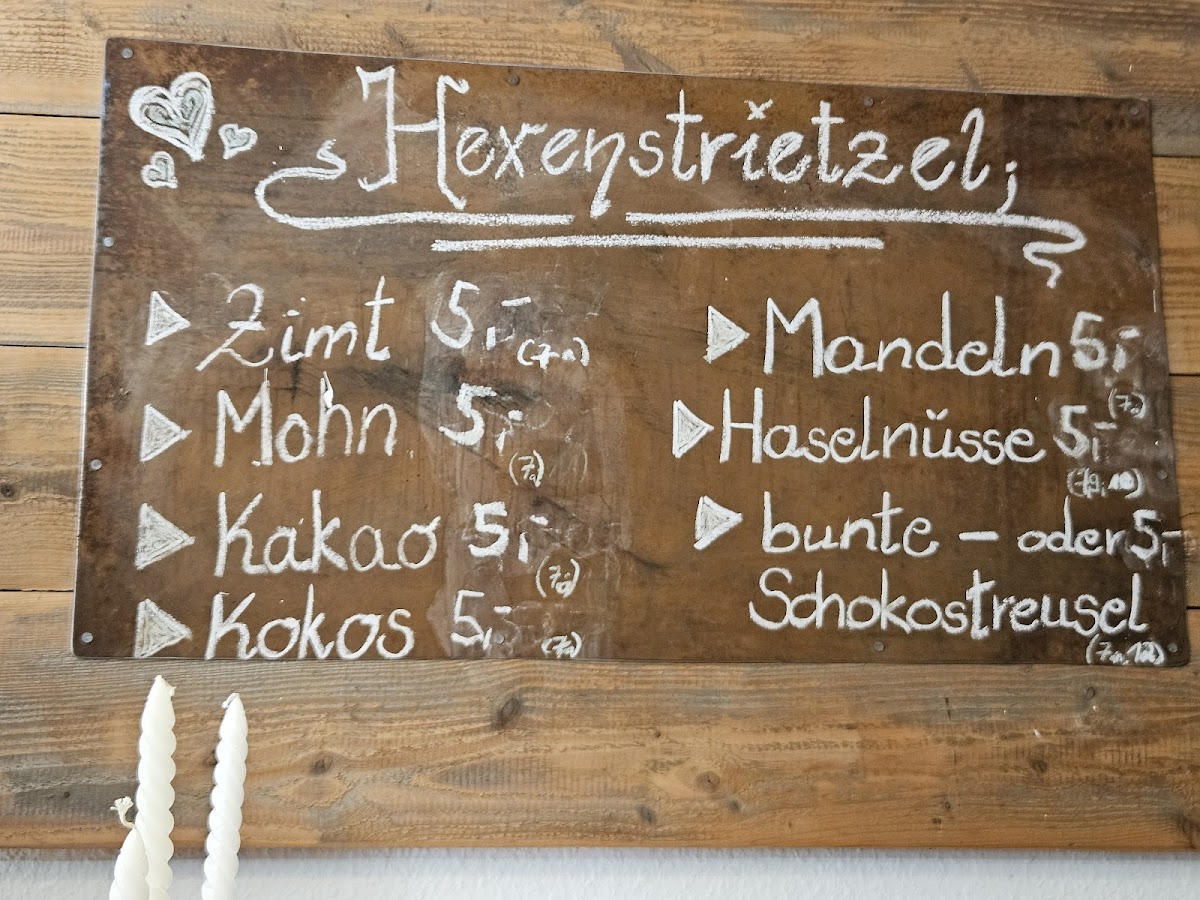 Hexenstrietzel;
Zimt 5,-
Mohn 5,-
Kakao 5,-
Kokos 5,-
Mandeln 5,-
Haselnüsse 5,-
bunte - oder 5,-
Schokostreusel